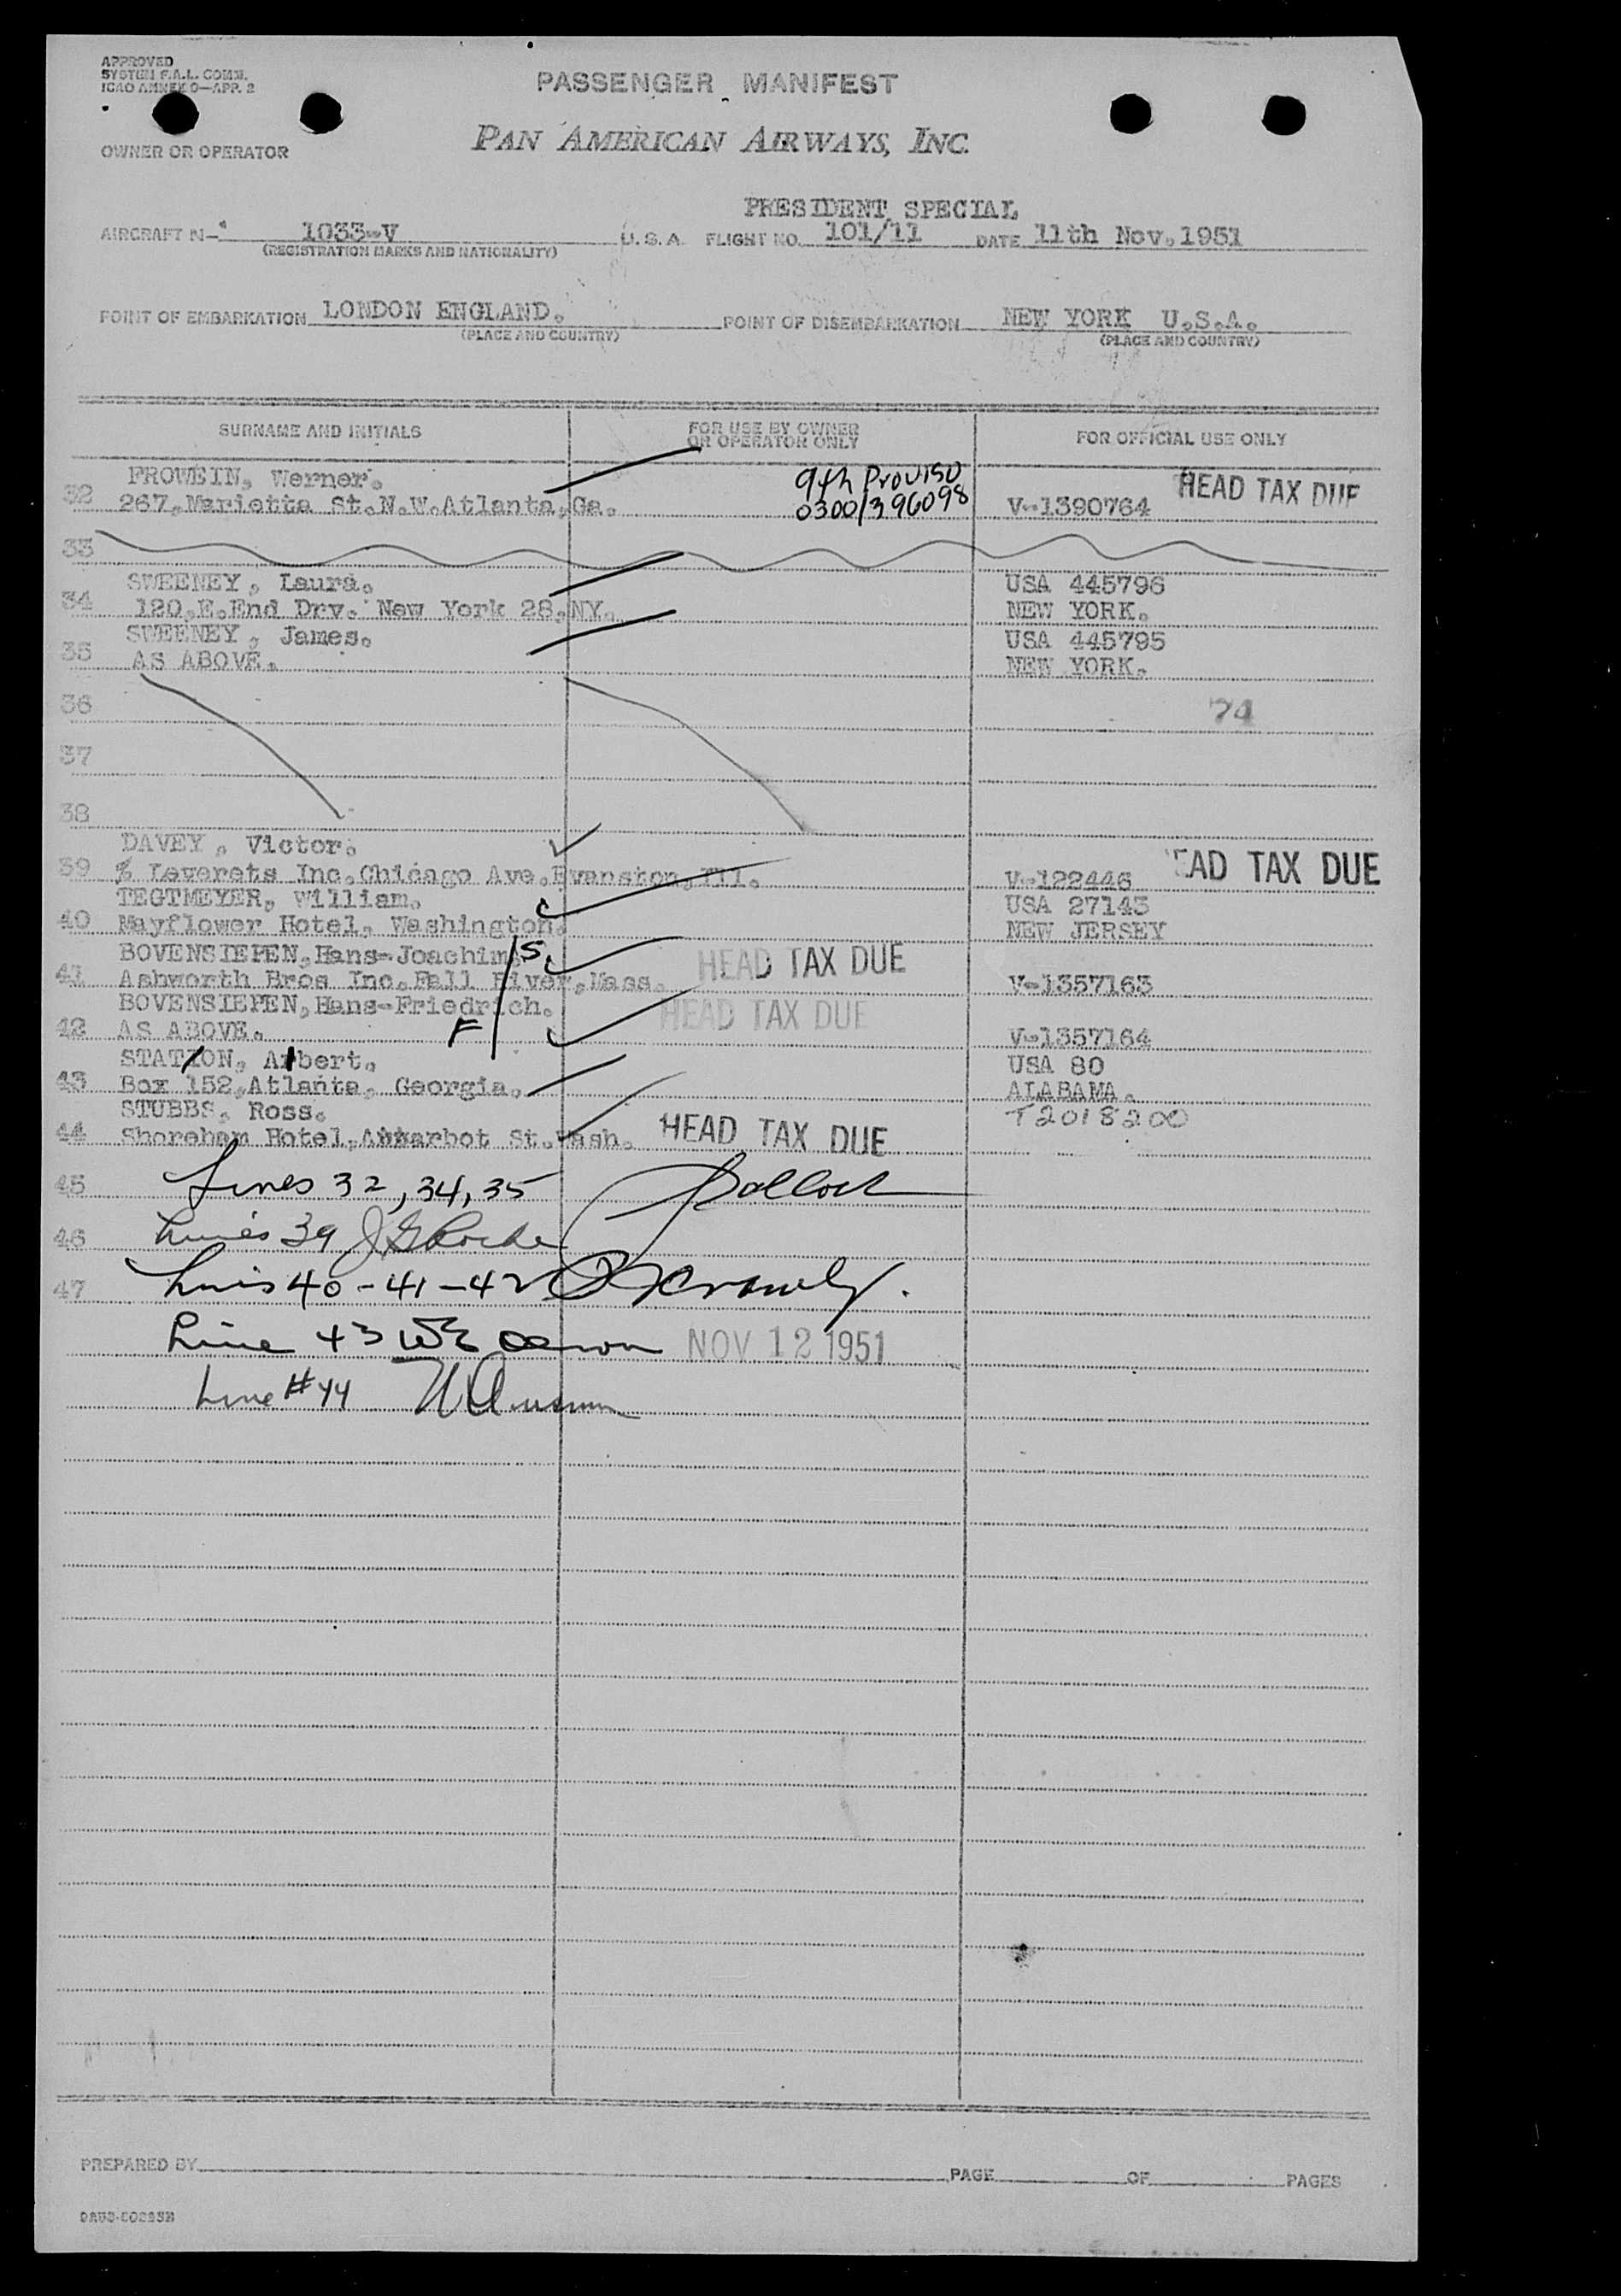 APPROVED
SYSTEM F.A.L. COMM.
ICAO ANNEX 9—APP. 2
PASSENGER MANIFEST
OWNER OR OPERATOR PAN AMERICAN AIRWAYS, INC.
PRESIDENT SPECIAL
AIRCRAFT N- 1033-V U.S.A. FLIGHT NO. 101/11 DATE 11th Nov.1951
(REGISTRATION MARKS AND NATIONALITY)
POINT OF EMBARKATION LONDON ENGLAND. POINT OF DISEMBARKATION NEW YORK U.S.A.
(PLACE AND COUNTRY) (PLACE AND COUNTRY)
SURNAME AND INITIALS FOR USE BY OWNER OR OPERATOR ONLY FOR OFFICIAL USE ONLY
FROWEIN, Werner. 9th Proviso HEAD TAX DUE
32 267,Marietta St.N.W.Atlanta,Ga. 0300/396098 V-1390764
33
SWEENEY, Laura. USA 445796
34 120,E.End Drv. New York 28,NY. NEW YORK.
SWEENEY, James. USA 445795
35 AS ABOVE. NEW YORK.
36 74
37
38
DAVEY, Victor.
39 % Leverets Inc.Chicago Ave.Evanston,Ill. V-122446 EAD TAX DUE
TEGTMEYER, William. USA 27143
40 Mayflower Hotel, Washington. NEW JERSEY
BOVENSIEPEN,Hans-Joachim. S HEAD TAX DUE
41 Ashworth Bros Inc.Fall River,Mass. V-1357163
BOVENSIEPEN,Hans-Friedrich. HEAD TAX DUE
42 AS ABOVE. F V-1357164
STATION, Albert. USA 80
43 Box 152,Atlanta, Georgia. ALABAMA.
STUBBS, Ross. T2018200
44 Shoreham Hotel, St.Wash. HEAD TAX DUE
45 Lines 32, 34, 35 Pollock
46 Lines 39 J G Roche
47 Lines 40-41-42
Line 43 NOV 12 1951
Line #44
PREPARED BY PAGE OF PAGES